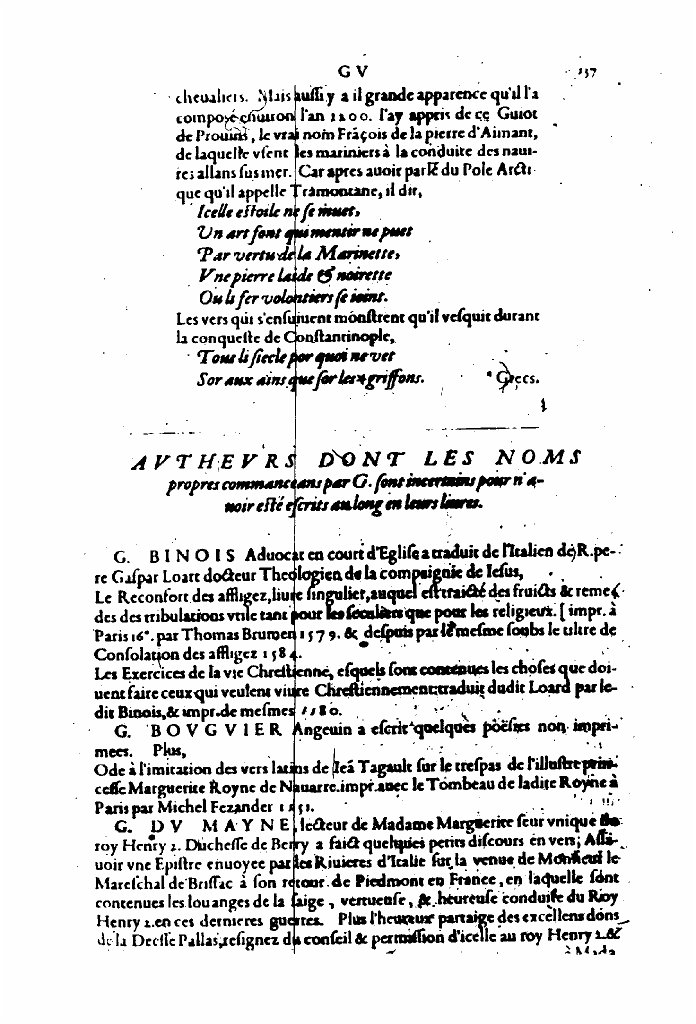 GV 537
cheualiers. Mais aussi y a il grande apparence qu'il l'a
composé enuiron l'an 1200. I'ay appris de ce Guiot
de Prouins, le vrai nom Frãçois de la pierre d'Aimant,
de laquelle vsent les mariniers à la conduite des naui-
res allans sus mer. Car apres auoir parlé du Pole Arcti
que qu'il appelle Tramontane, il dit,
Icelle estoile ne se muet,
Vn art font qui mentir ne puet
Par vertu de la Marinette,
Vne pierre laide & noirette
Ou li fer volontiers se ioint.
Les vers qui s'ensuiuent monstrent qu'il vesquit durant
la conqueste de Constantinople,
Tous li siecle por quoi ne vet
Sor aux ains que sor les *griffons. *Grecs.
AVTHEVRS DONT LES NOMS
propres commanceans par G. sont incertains pour n'a-
uoir esté escrits au long en leurs liures.
G. BINOIS Aduocat en court d'Eglise a traduit de l'Italien de R. pe-
re Gaspar Loart docteur Theologien de la compaignie de Iesus,
Le Reconfort des affligez, liure singulier, auquel est traicté des fruicts & reme-
des des tribulations vtile tant pour les seculiers que pour les religieux. [impr. à
Paris 16°. par Thomas Brumen 1579. & despuis par le mesme soubs le tiltre de
Consolation des affligez 1584.
Les Exercices de la vie Chrestienne, esquels sont contenues les choses que doi-
uent faire ceux qui veulent viure Chrestiennement: traduit dudit Loard par le-
dit Binois, & impr. de mesmes 1580.
G. BOVGVIER Angeuin a escrit quelques poësies non impri-
mees. Plus,
Ode à l'imitation des vers latins de Ieã Tagault sur le trespas de l'illustre prin-
cesse Marguerite Royne de Nauarre. impr. auec le Tombeau de ladite Royne à
Paris par Michel Fezander 1551.
G. DV MAYNE, lecteur de Madame Marguerite seur vnique du
roy Henry 2. Duchesse de Berry a faict quelques petits discours en vers; Assa-
uoir vne Epistre enuoyee par les Riuieres d'Italie sur la venue de Monsieur le
Mareschal de Brissac à son retour de Piedmont en France, en laquelle sont
contenues les louanges de la saige, vertueuse, & heureuse conduite du Roy
Henry 2. en ces dernieres guerres. Plus l'heureux partaige des excellens dons
de la Deesse Pallas, resignez du conseil & permission d'icelle au roy Henry 2. &
à Mada